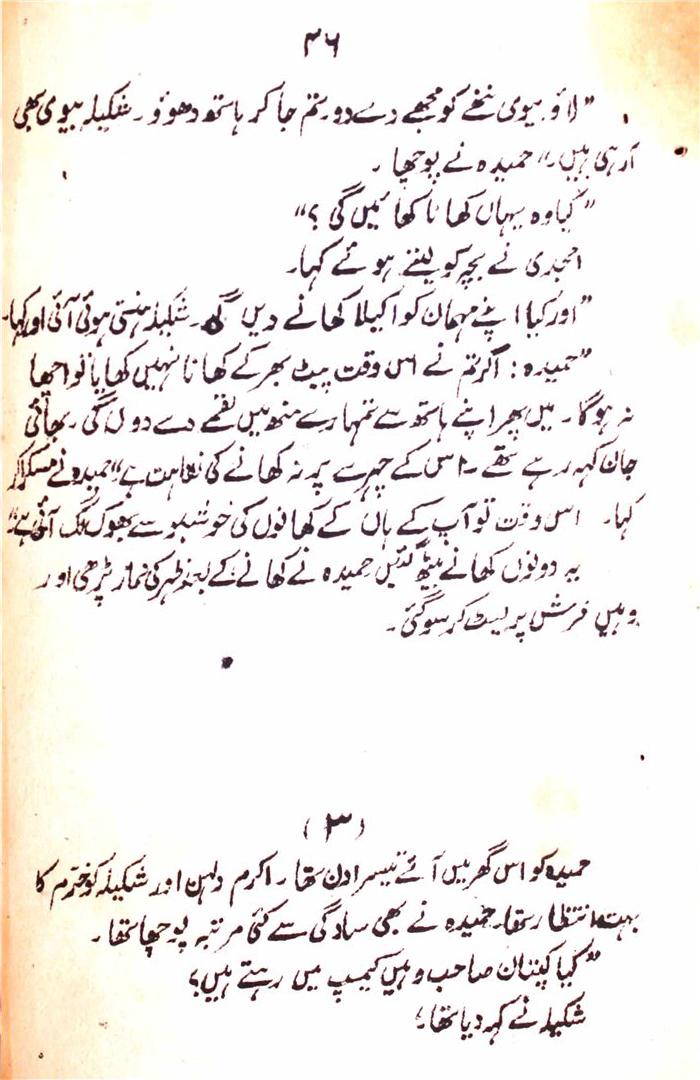 ۳۶
"لاؤ بیوی ننھے کو مجھے دے دو۔ تم جا کر ہاتھ دھوؤ۔ شکیلہ بیوی بھی
آرہی ہیں۔" حمیدہ نے پوچھا ۔
"کیا وہ یہاں کھانا کھائیں گی ؟"
امجدی نے بچہ کو لیتے ہوئے کہا۔
"اور کیا اپنے مہمان کو اکیلا کھانے دیں گے۔ شکیلہ ہنستی ہوئی آئی اور کہا۔
"حمیدہ : اگر تم نے اس وقت پیٹ بھر کے کھانا نہیں کھایا تو اچھا
نہ ہوگا ۔ میں پھر اپنے ہاتھ سے تمہارے منھ میں لقمے دے دوں گی۔ بھائی
جان کہہ رہے تھے ۔ اس کے چہرے پر نہ کھانے کی نقاہت ہے" حمیدہ نے مسکرا کر
کہا۔ اس وقت تو آپ کے ہاں کے کھانوں کی خوشبو سے بھوک لگ آئی ہے"
یہ دونوں کھانے بیٹھ گئیں حمیدہ نے کھانے کے بعد ظہر کی نماز پڑھی اور
وہیں فرش پر لیٹ کر سو گئی ۔
(۳)
حمیدہ کو اس گھر میں آئے تیسرا دن تھا ۔ اکرم دلہن اور شکیلہ کو خرم کا
بہت انتظار تھا۔ حمیدہ نے بھی سادگی سے کئی مرتبہ پوچھا تھا ۔
"کیا کپتان صاحب وہیں کیمپ میں رہتے ہیں؟
شکیلہ نے کہہ دیا تھا۔